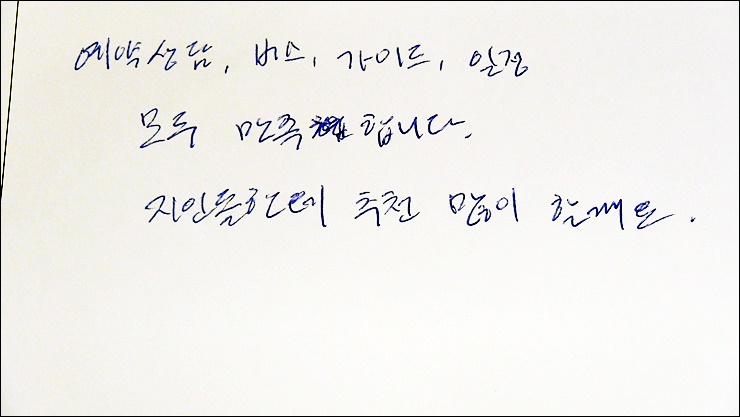 예약상담, 버스, 가이드, 일정
모두 만족합니다.
지인들한테 추천 많이 할께요.